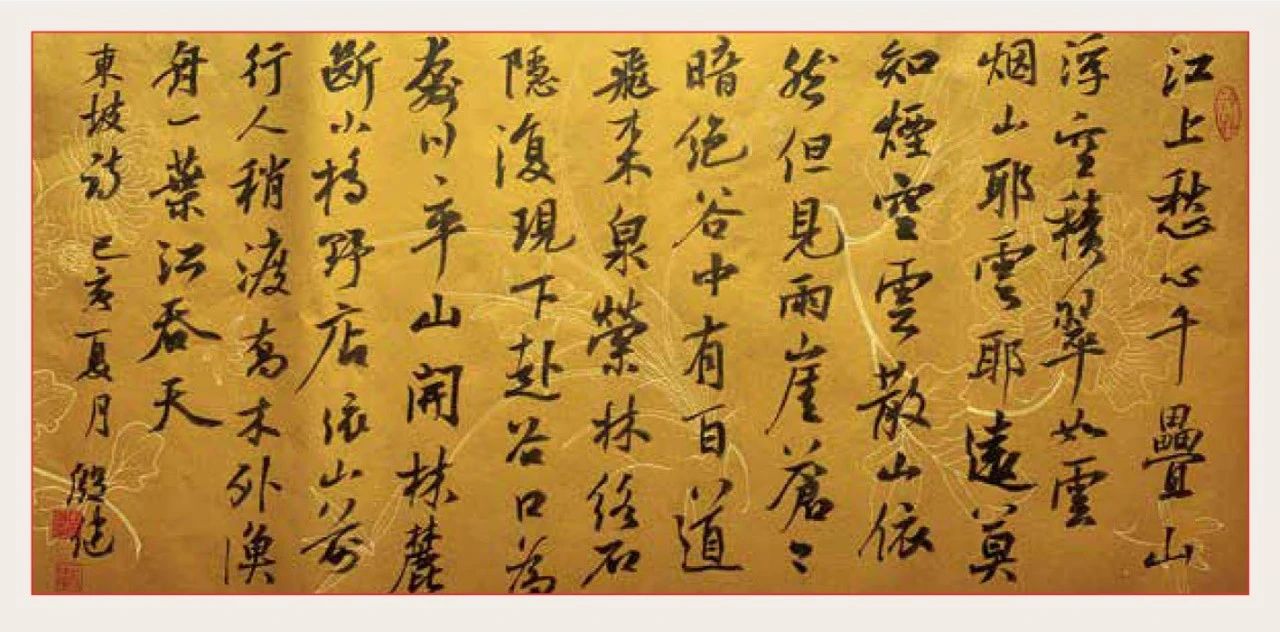 江上愁心千疊山
浮空積翠如雲
烟山耶雲耶遠莫
知煙空雲散山依
然但見兩崖蒼々
暗絶谷中有百道
飛来泉縈林絡石
隱復現下赴谷口為
奔川々平山開林麓
斷小橋野店依山前
行人稍渡喬木外漁
舟一葉江吞天
東坡詩 己亥夏月